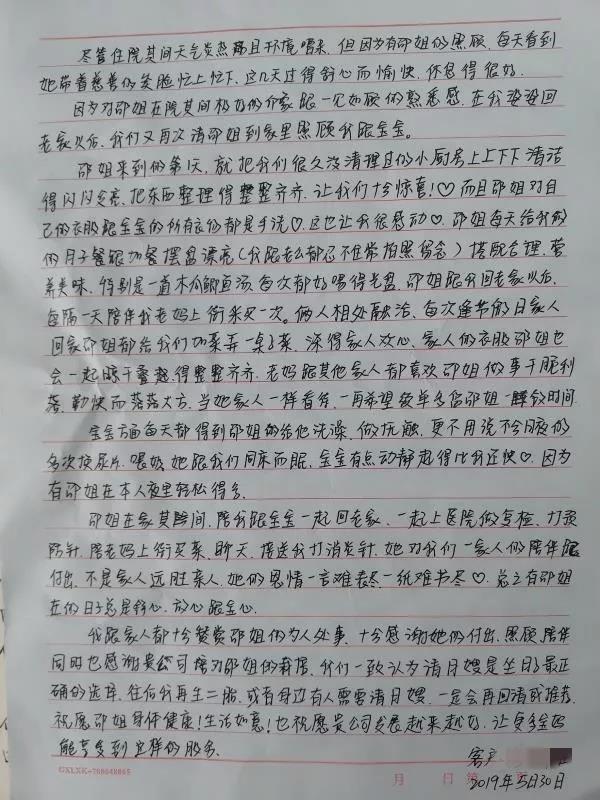 尽管住院其间天气炎热而且环境嘈杂,但因为有邵姐的照顾,每天看到
她带着慈善的笑脸忙上忙下,这几天过得舒心而愉快,休息得很好。
因为对邵姐在院其间极好的印象跟一见如顾的熟悉感,在我婆婆回
老家以后,我们又再次请邵姐到家里照顾我跟宝宝。
邵姐来到的第1天,就把我们很久没清理过的小厨房上上下下清洁
得闪闪发亮,把东西整理得整整齐齐,让我们十分惊喜!♡而且邵姐对自
己的衣服跟宝宝的所有衣物都是手洗♡这也让我很感动♡.邵姐每天给我做
的月子餐跟加餐摆盘漂亮(我跟老公都忍不住常拍照留念)搭配合理,营
养美味,特别是一道木瓜鲫鱼汤每次都好喝得光盘,邵姐跟我回老家以后,
每隔一天陪伴我老妈上街采买一次。俩人相处融洽,每次逢节假日家人
回家邵姐都给我们加菜弄一桌子菜,深得家人欢心,家人的衣服邵姐也
会一起晾干叠起得整整齐齐,老妈跟其他家人都喜欢邵姐做事干脆利
落,勤快而落落大方,当她家人一样看待,一再希望签单多留邵姐一段时间.
宝宝方面每天都得到邵姐的给他洗澡,做抚触,更不用说半夜的
多次换尿片、喂奶,她跟我们同床而眠,宝宝有点动静起得比我还快♡.因为
有邵姐在本人夜里轻松得多,
邵姐在家其间,陪我跟宝宝一起回老家、一起上医院做复检、打预
防针,陪老妈上街买菜、聊天,接送我打消炎针,她对我们一家人的陪伴跟
付出,不是家人远胜亲人,她的恩情一言难表尽一纸难书尽♡.总之有邵姐
在的日子总是舒心,放心跟全心.
我跟家人都十分赞赏邵姐的为人处事,十分感谢她的付出、照顾、陪伴
同时也感谢贵公司培对邵姐的栽培,我们一致认为请月嫂是坐月子最正
确的选择,往后我再生二胎,或者身边有人需要请月嫂,一定会再回请或推荐.
祝愿邵姐身体健康!生活如意!也祝愿贵公司发展越来越好,让更多宝妈
能享受到这样的服务.
客户
2019年5月30日
GXLXK-768048865 月 日 第